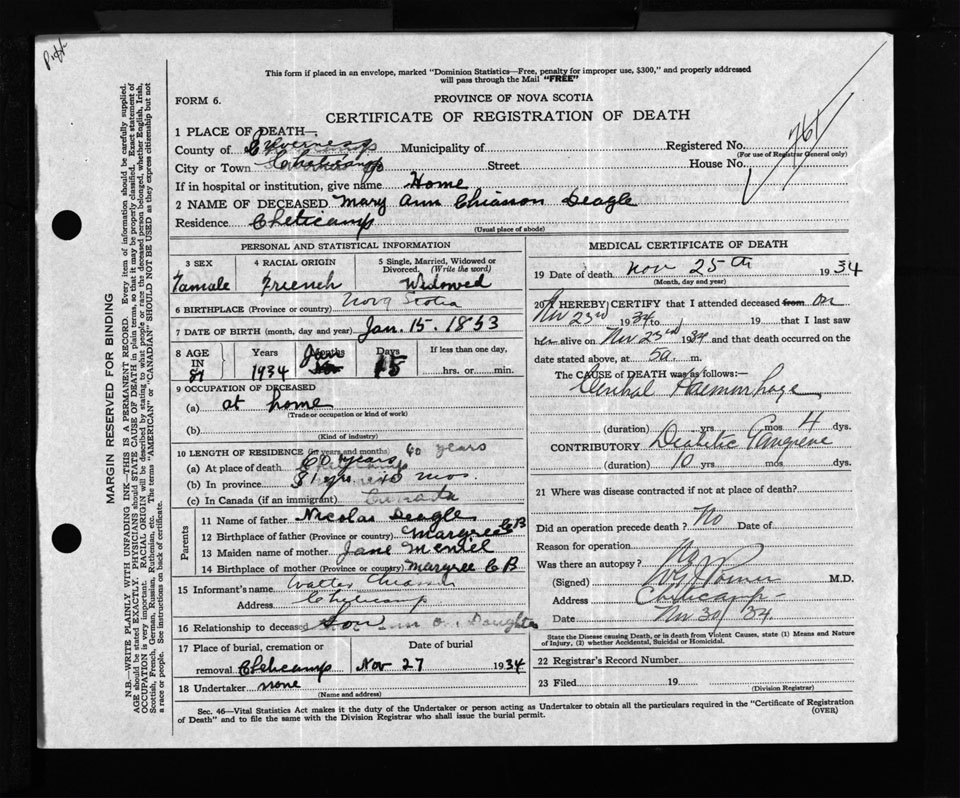 This form if placed in an envelope, marked "Dominion Statistics—Free, penalty for improper use, $300," and properly addressed
will pass through the Mail "FREE"
FORM 6.
PROVINCE OF NOVA SCOTIA
CERTIFICATE OF REGISTRATION OF DEATH
1 PLACE OF DEATH—
County of Inverness Municipality of Registered No. 761
(For use of Registrar General only)
City or Town Cheticamp Street House No.
If in hospital or institution, give name Home
2 NAME OF DECEASED Mary Ann Chiasson Deagle
Residence Cheticamp
(Usual place of abode)
PERSONAL AND STATISTICAL INFORMATION
3 SEX 4 RACIAL ORIGIN 5 Single, Married, Widowed or Divorced. (Write the word)
Famale Friench Widowed
6 BIRTHPLACE (Province or country) Nova Scotia
7 DATE OF BIRTH (month, day and year) Jan. 15. 1853
8 AGE IN 81 Years 1934 Months Days 15 If less than one day, hrs. or min.
9 OCCUPATION OF DECEASED
(a) at home
(Trade or occupation or kind of work)
(b)
(Kind of industry)
10 LENGTH OF RESIDENCE (in years and months) 60 years
(a) At place of death 60 years
(b) In province 81 yrs mos.
(c) In Canada (if an immigrant) Canada
Parents
11 Name of father Nicolas Deagle
12 Birthplace of father (Province or country) Margree C B
13 Maiden name of mother Jane
14 Birthplace of mother (Province or country) Margree C B
15 Informant's name Walter Chiasson
Address Cheticamp
16 Relationship to deceased Son
17 Place of burial, cremation or Date of burial
removal Cheticamp Nov 27 1934
18 Undertaker none
(Name and address)
MEDICAL CERTIFICATE OF DEATH
19 Date of death Nov 25th 1934
(Month, day and year)
20 I HEREBY CERTIFY that I attended deceased from on
Nov 23rd 1934 to 19 that I last saw
her alive on Nov 23rd 1934 and that death occurred on the
date stated above, at 5a. m.
The CAUSE of DEATH was as follows:—
Cerebral Haemorrhage
(duration) yrs. mos. 4 dys.
CONTRIBUTORY Diabetic Gangrene
(duration) 10 yrs. mos. dys.
21 Where was disease contracted if not at place of death?
Did an operation precede death? No Date of
Reason for operation
Was there an autopsy? No
(Signed) M.D.
Address Cheticamp
Date Nov 30/34.
State the Disease causing Death, or in death from Violent Causes, state (1) Means and Nature
of Injury, (2) whether Accidental, Suicidal or Homicidal.
22 Registrar's Record Number
23 Filed 19
(Division Registrar)
Sec. 46—Vital Statistics Act makes it the duty of the Undertaker or person acting as Undertaker to obtain all the particulars required in the "Certificate of Registration
of Death" and to file the same with the Division Registrar who shall issue the burial permit.
(OVER)
MARGIN RESERVED FOR BINDING
N.B.—WRITE PLAINLY WITH UNFADING INK—THIS IS A PERMANENT RECORD. Every item of information should be carefully supplied.
AGE should be stated EXACTLY. PHYSICIANS should STATE CAUSE OF DEATH in plain terms, so that it may be properly classified. Exact statement of
OCCUPATION is very important. RACIAL ORIGIN will be described by stating to what people or race the deceased person belonged, whether English, Irish,
Scottish, French, German, Russian, Ruthenian, etc. The terms "AMERICAN" or "CANADIAN" SHOULD NOT BE USED as they express citizenship but not
a race or people. See instructions on back of certificate.